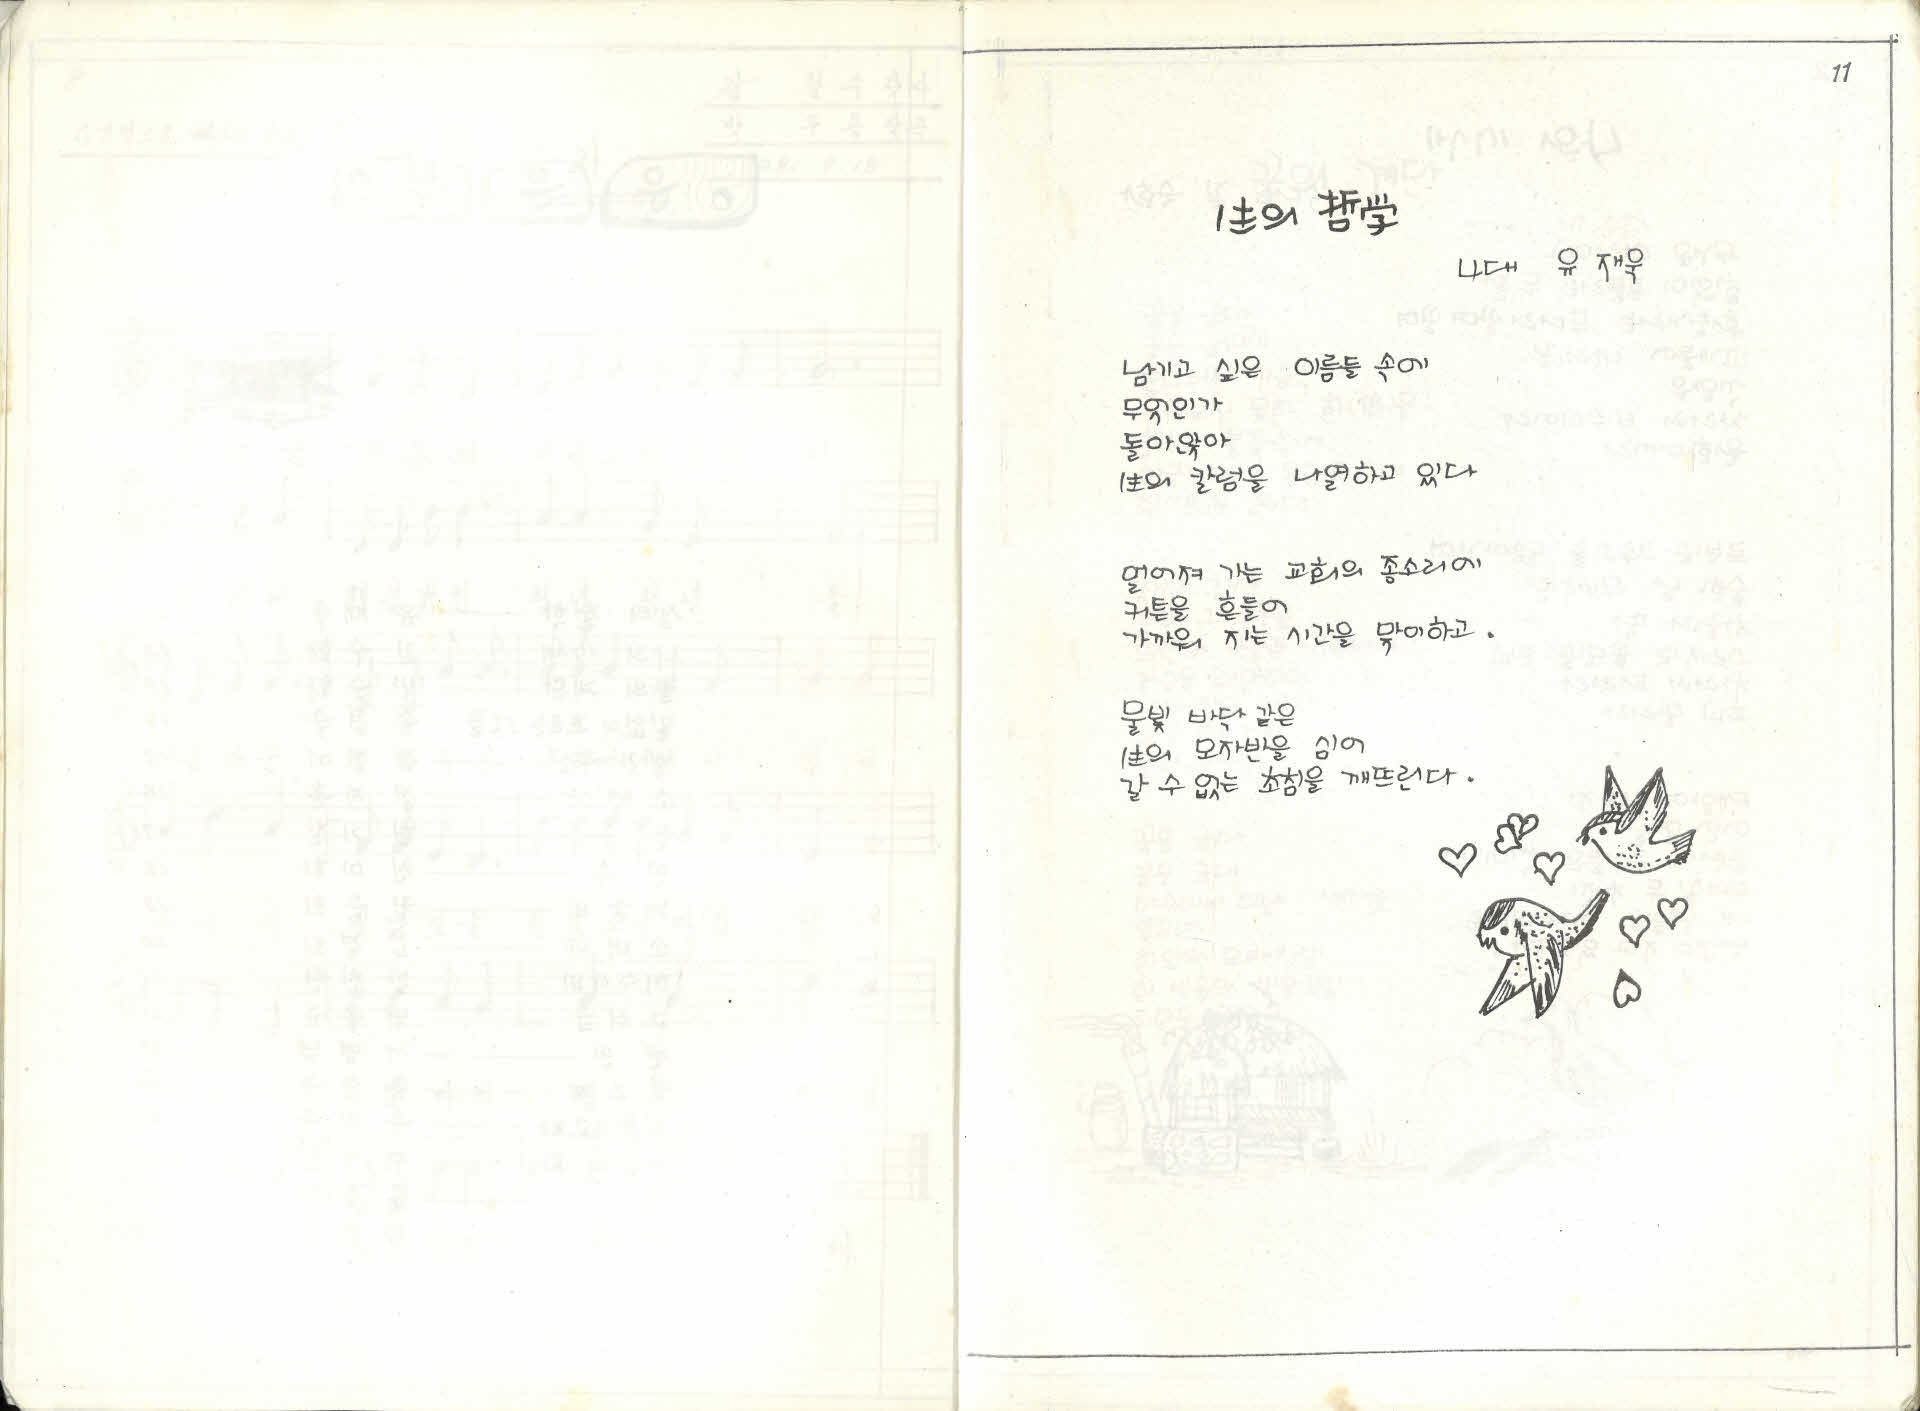 11
1초의 哲学
4대 유 재욱
남기고 싶은 이름들 속에
무엇인가
돌아앉아
1초의 칼럼을 나열하고 있다
멀어져 가는 교회의 종소리에
귀튼을 흔들어
가까워 지는 시간을 맞이하고.
물빛 바닥 같은
1초의 모자반을 심어
갈 수 없는 초침을 깨뜨린다.